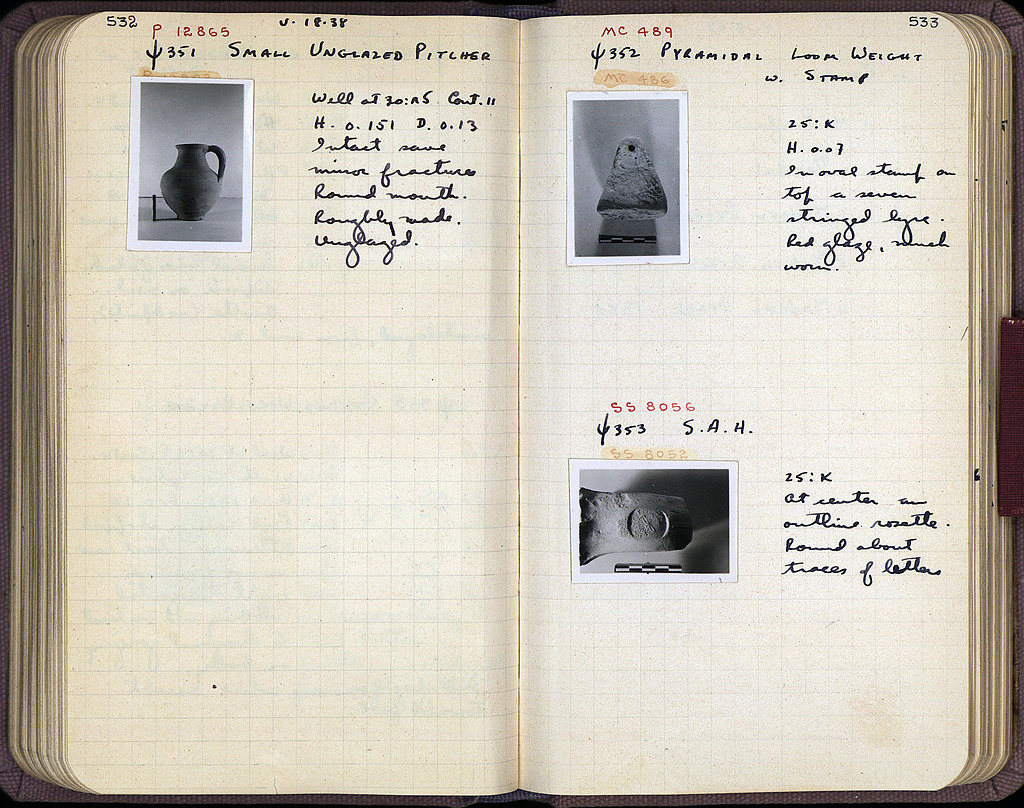 532
V. 18.38
P 12865
ψ351 SMALL UNGLAZED PITCHER
Well at 20:ΛΣ. Cont. 11
H. 0.151 D. 0.13
Intact save
minor fractures
Round mouth.
Roughly made.
Unglazed.
533
MC 489
ψ352 PYRAMIDAL LOOM WEIGHT
w. STAMP
MC 486
25:K
H. 0.07
In oval stamp on
top a seven
stringed lyre.
Red glaze, much
worn.
SS 8056
ψ353 S.A.H.
SS 8052
25:K
At center an
outline rosette.
Round about
traces of letters